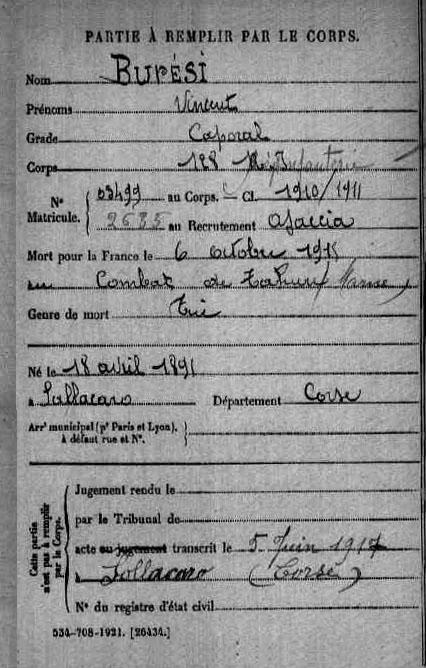 PARTIE À REMPLIR PAR LE CORPS.
Nom BUPÉSI
Prénoms Vincent
Grade Caporal
Corps 128 Rég Infanterie
N° Matricule. 03499 au Corps. — Cl. 1910/1911
2685 au Recrutement Ajaccio
Mort pour la France le 6 octobre 1915
au Combat de Tahure (Marne)
Genre de mort Tué
Né le 18 avril 1891
à Sollacaro Département Corse
Arr' municipal (p' Paris et Lyon), à défaut rue et N°.
Cette partie n'est pas à remplir par le Corps.
Jugement rendu le
par le Tribunal de
acte ou jugement transcrit le 5 Juin 1917
à Sollacaro (Corse)
N° du registre d'état civil
534-708-1921. [26434.]